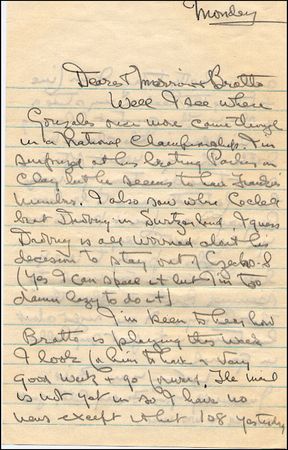 Monday
Dearest Marrion + Bratto
Well I see where
Gonzales once more came through
in a National Championship. I'm
surprised at his beating Parker on
Clay but he seems to have Frankie's
number. I also saw where Cochell
beat Drobny in Switzerland. I guess
Drobny is all worried about his
decision to stay out of Czecho-S
(Yes I can spell it but I'm too
damn lazy to do it)
I'm keen to hear how
Bratto is playing this week
I look for him to have a very
good week + go forward. The mail
is not yet in so I have no
news except it hit 108 yesterday